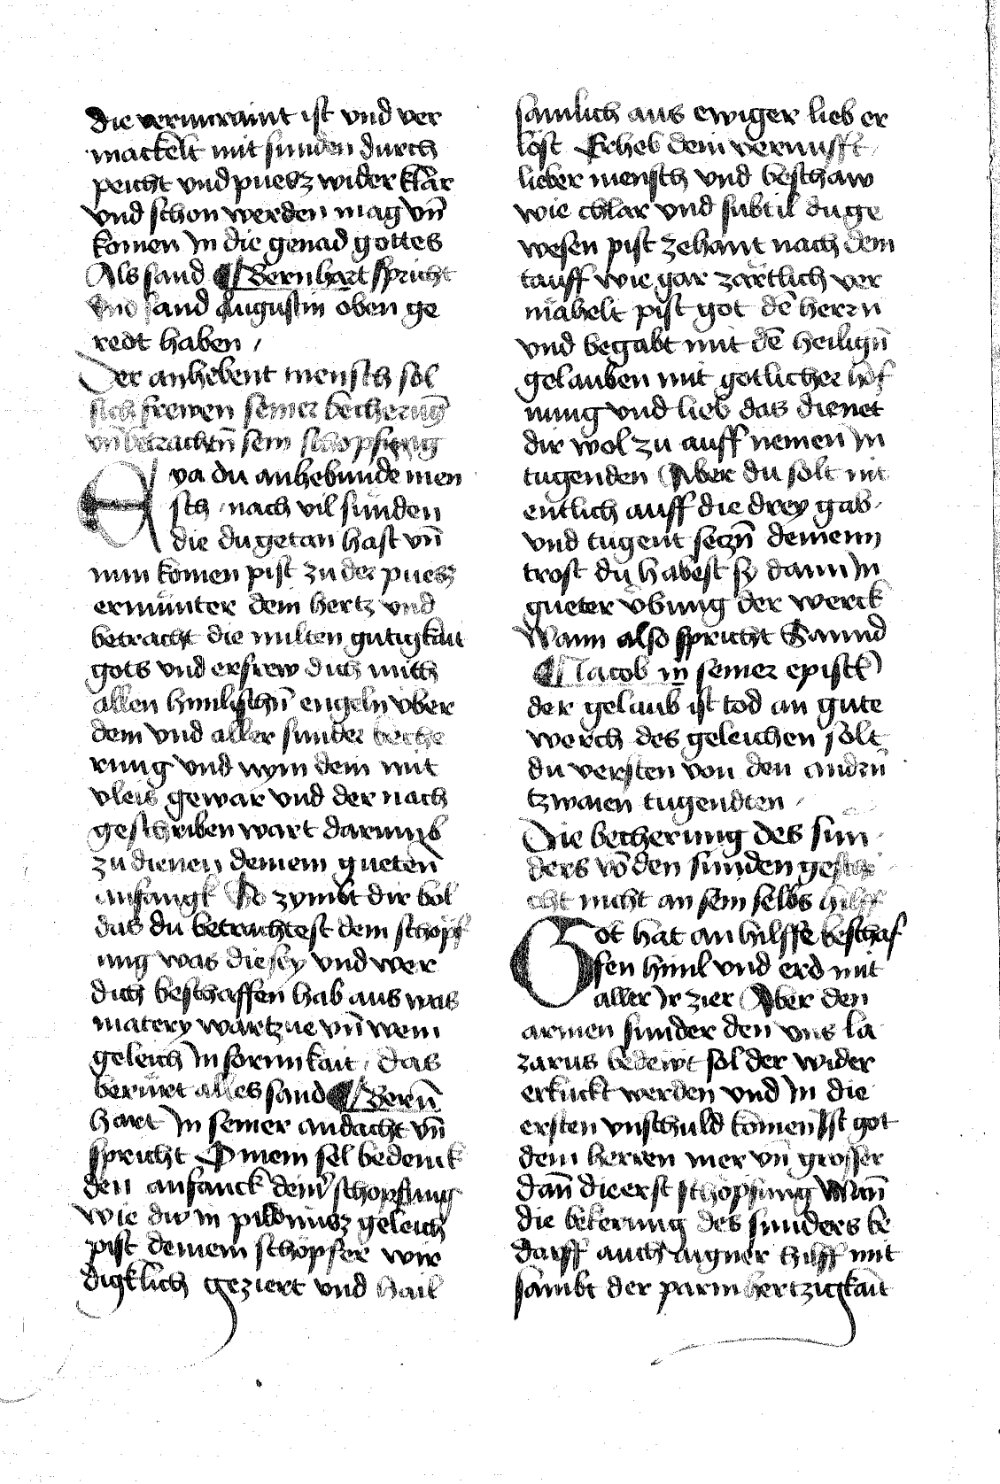 die vermraint ist vnd ver
mackelt mit sunden durch
peicht vnd puesz wider klar
vnd schon werden mag vn̄
komen in die genad gottes
Als sand ¶ Bernhart spricht
vnd sand augustin oben ge
redt haben /
Der anhebent mensch sol
sich frewen seiner becherūg
vn̄ betrachtn̄ sein schopfung
Eya du anhebunde men
sch nach vil sunden
die du getan hast vn̄
nun komen pist zu der puesz
ermünter dein hertz vnd
betracht die milten gutigkait
gots vnd erfrew dich mitt
allen himlischn̄ engeln vber
dein vnd aller sunder beche
rung vnd nym dein mit
vleis gewar vnd der nach
geschriben wart darumb
zu dienen deinem guetenn
anfangk So zymbt dir bol
das du betrachtest dein schöpf
ung was die sey vnd wer
dich beschaffen hab aus was
matery wartzue vn̄ wem
geleich in formkait / das
berürt alles sand ¶ Bern̄
hart in seiner andacht vn̄
spricht O mein sel bedenck
den anfanck deinr schopfung
wie du in pildnusz geleich
pist deinem schöpfer wir
digklich geziert vnd hail
samlich aus ewiger lieb er
löst Erheb dein vernufft
lieber mensch vnd beschaw
wie chlar vnd subtil du ge
wesen pist zehant nach dem
tauff wie gar zärtlich ver
mähelt pist got dē herrn
vnd begabt mit dē heilign̄
gelauben mit gotlicher hof
nung vnd lieb das dienet
dir wol zu auff nemen in
tugenden Aber du solt nit
entlich auff die drey gab
vnd tugent seczn̄ deinenn
trost du habest sy dann in
gueter vbung der werck
Wann also spricht Sannd
¶ Jacob in seiner epistel
der gelaub ist tod an gute
werch des geleichen solt
du versten von den andrn̄
tzwaien tugendten /
Die becherung des sun
ders vō den sunden geschi
cht nicht an sein selbs hilff
Got hat an hilffe beschaf
fen himl vnd erd mit
aller ir zier Aber den
armen sunder den vns la
zarus bedewt sol der wider
erkuckt werden vnd in die
ersten vnschuld komen Ist got
dem herren mer vn̄ grosser
dan̄ die erst schopfung Wan̄
die bekerung des sunders be
darff auch aigner hilff mit
sambt der parmhertzigkait